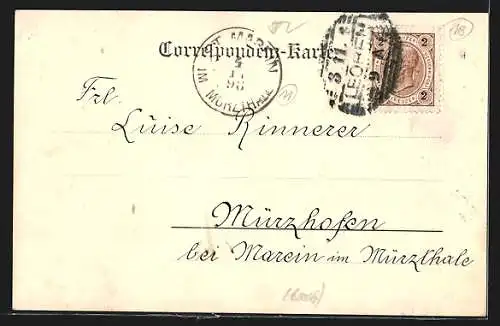 Correspondenz-Karte
ST. MAREIN
MÜRZTHALE
98
LEOBEN
3 11
2 2
18
Frl.
Luise Rinnerer
Mürzhofen
bei Marein im Mürzthale